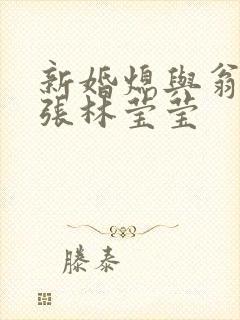 新婚熄與翁
張林莹莹
滕泰